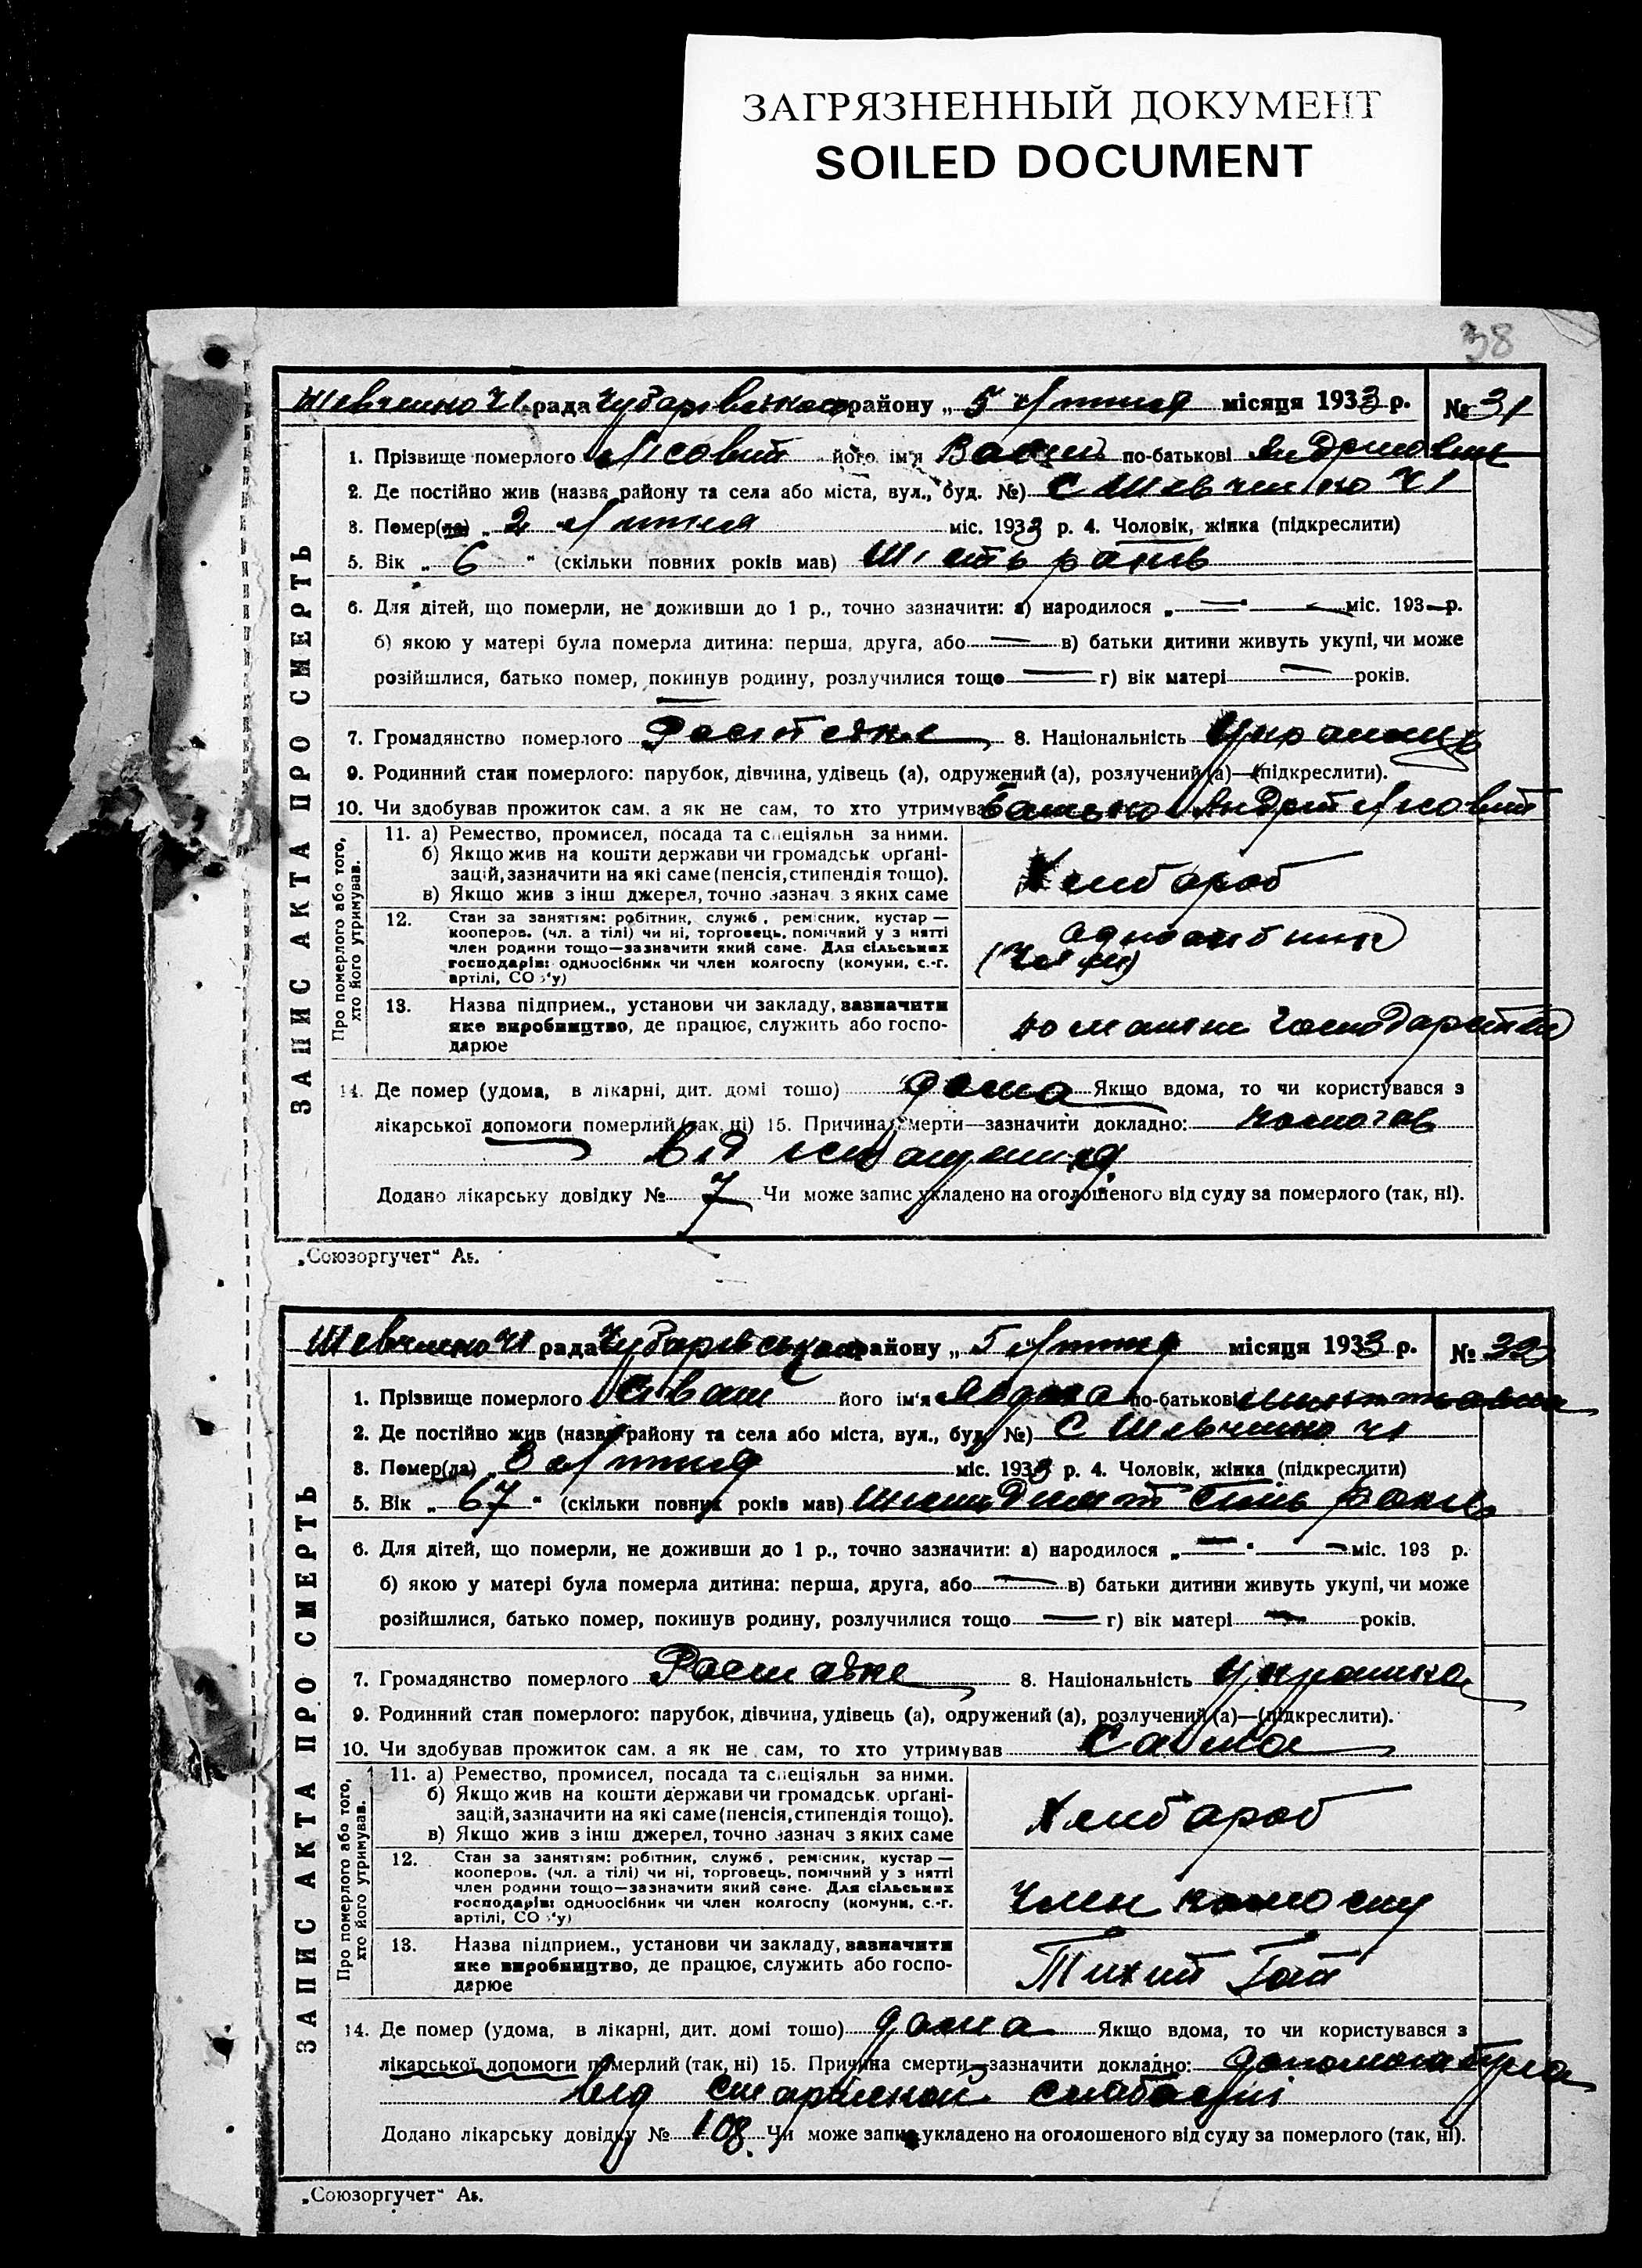 ЗАГРЯЗНЕННЫЙ ДОКУМЕНТ
SOILED DOCUMENT
38
Шевченко ЧІ рада Чубарівського району „ 5 Лютня місяця 1933 р. № 31
ЗАПИС АКТА ПРО СМЕРТЬ
1. Прізвище померлого Лісовий його ім'я Василь по-батькові Андрійович
2. Де постійно жив (назва району та села або міста, вул., буд. №) С Шевченко ЧІ
3. Помер(ла) „ 2 Лютня міс. 1933 р. 4. Чоловік, жінка (підкреслити)
5. Вік „ 6 " (скільки повних років мав) Шість років
6. Для дітей, що померли, не доживши до 1 р., точно зазначити: а) народилося „ — " — міс. 193—р.
б) якою у матері була померла дитина: перша, друга, або — в) батьки дитини живуть укупі, чи може
розійшлися, батько помер, покинув родину, розлучилися тощо — г) вік матері — років.
7. Громадянство померлого 8. Національність Українець
9. Родинний стан померлого: парубок, дівчина, удівець (а), одружений (а), розлучений (а)—(підкреслити).
10. Чи здобував прожиток сам, а як не сам, то хто утримував Батько Андрій Лісовий
Про померлого або того, хто його утримував.
11. а) Ремество, промисел, посада та спеціяльн за ними.
б) Якщо жив на кошти держави чи громадськ органі-
зацій, зазначити на які саме (пенсія, стипендія тощо).
в) Якщо жив з інш джерел, точно зазнач з яких саме
Хлібороб
12. Стан за заняттям: робітник, служб, ремісник, кустар —
кооперов. (чл. а тілі) чи ні, торговець, помічний у з нятті
член родини тощо—зазначити який саме. Для сільських
господарів: одноосібник чи член колгоспу (комуни, с.-г.
артілі, СО 'у)
одноосібник
13. Назва підприєм., установи чи закладу, зазначити
яке виробництво, де працює, служить або госпо-
дарює
господарство
14. Де помер (удома, в лікарні, дит. домі тошо) дома Якщо вдома, то чи користувався з
лікарської допомоги померлий (так, ні) 15. Причина смерти—зазначити докладно:
від
Додано лікарську довідку № 7 Чи може запис укладено на оголошеного від суду за померлого (так, ні).
„Союзоргучет" Аь.
Шевченко ЧІ рада Чубарівського району „ 5 Лютня місяця 1933 р. № 32
ЗАПИС АКТА ПРО СМЕРТЬ
1. Прізвище померлого Іваш його ім'я по-батькові
2. Де постійно жив (назва району та села або міста, вул., буд №) С Шевченко ЧІ
3. Помер(ла) „ 3 Лютня міс. 1933 р. 4. Чоловік, жінка (підкреслити)
5. Вік „ 67 " (скільки повних років мав) шісьдесят сімь років
6. Для дітей, що померли, не доживши до 1 р., точно зазначити: а) народилося „ — " — міс. 193 р.
б) якою у матері була померла дитина: перша, друга, або — в) батьки дитини живуть укупі, чи може
розійшлися, батько помер, покинув родину, розлучилися тощо — г) вік матері — років.
7. Громадянство померлого 8. Національність Українка
9. Родинний стан померлого: парубок, дівчина, удівець (а), одружений (а), розлучений (а)—(підкреслити).
10. Чи здобував прожиток сам, а як не сам, то хто утримував Сама
Про померлого або того, хто його утримував.
11. а) Ремество, промисел, посада та спеціяльн за ними.
б) Якщо жив на кошти держави чи громадськ. органі-
зацій, зазначити на які саме (пенсія, стипендія тощо).
в) Якщо жив з інш джерел, точно зазнач з яких саме
Хлібороб
12. Стан за заняттям: робітник, служб, ремісник, кустар —
кооперов. (чл. а тілі) чи ні, торговець, помічний у з нятті
член родини тощо—зазначити який саме. Для сільських
господарів: одноосібник чи член колгоспу (комуни, с.-г.
артілі, СО 'у)
Член колгоспу
13. Назва підприєм., установи чи закладу, зазначити
яке виробництво, де працює, служить або госпо-
дарює
Тихий Гай
14. Де помер (удома, в лікарні, дит. домі тошо) дома Якщо вдома, то чи користувався з
лікарської допомоги померлий (так, ні) 15. Причина смерти—зазначити докладно: допомога була
від старческой слабости
Додано лікарську довідку № 108 Чи може запис укладено на оголошеного від суду за померлого (так, ні).
„Союзоргучет" Аь.